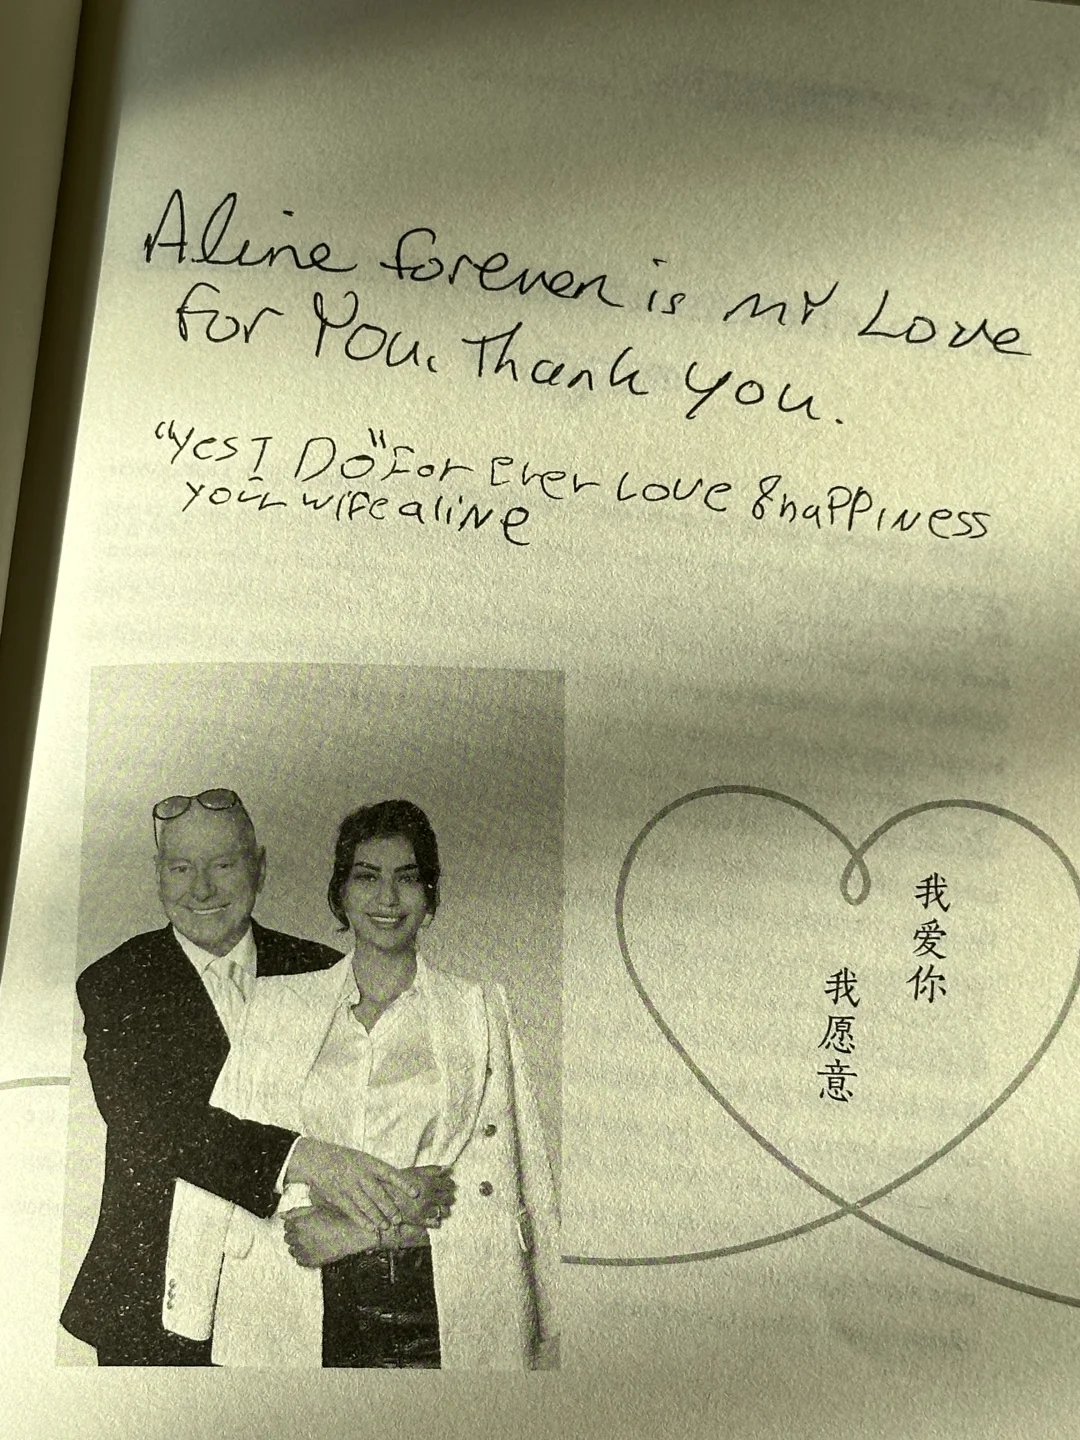 Aline forever is my Love
for You. Thank you.
“Yes I Do” For Ever Love & happiness
your wife aline
我爱你
我愿意